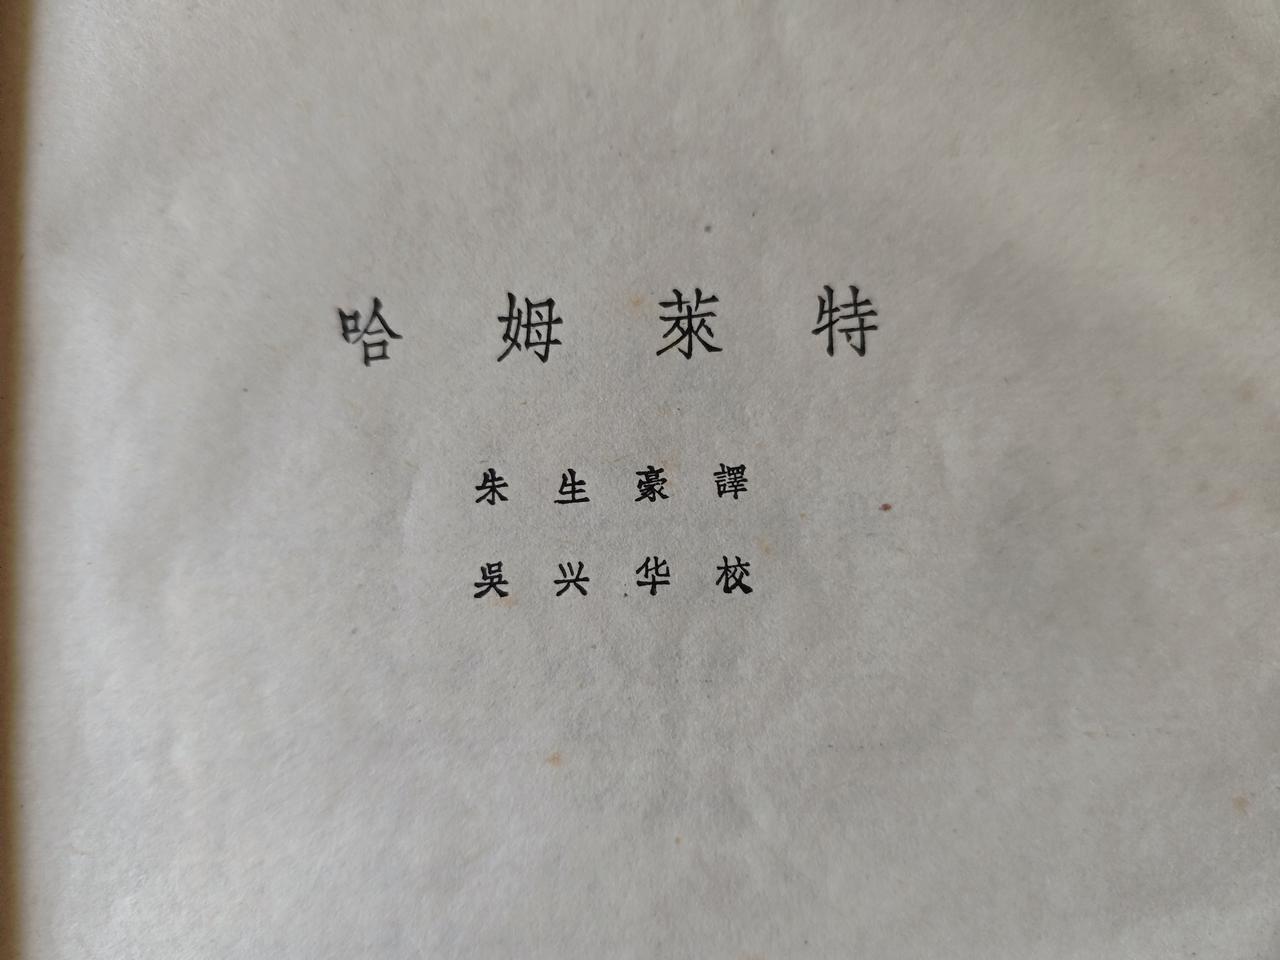 哈姆萊特
朱生豪譯
吳兴华校